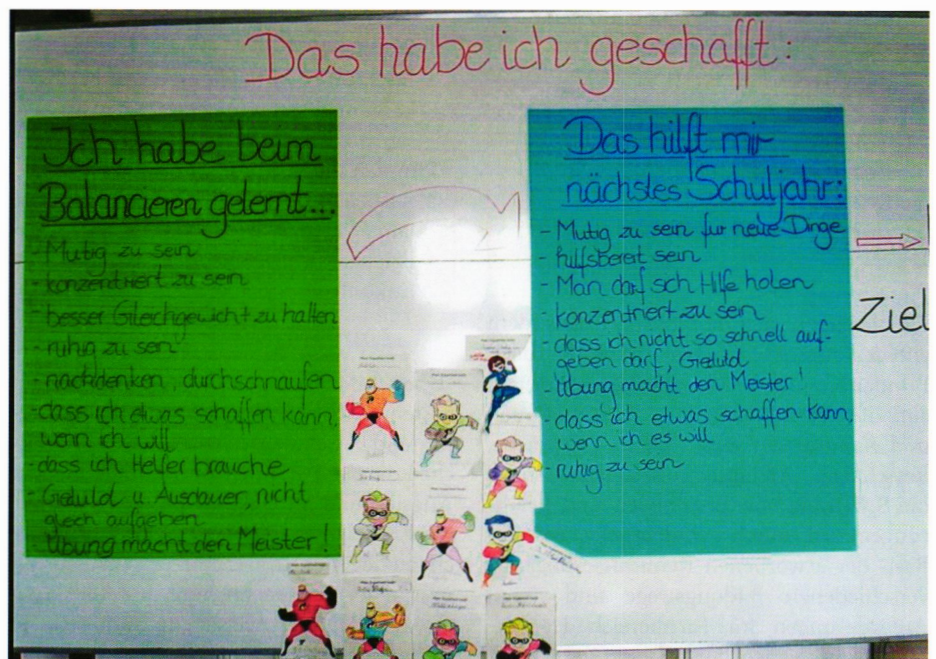 Das habe ich geschafft:
Ich habe beim
Balancieren gelernt...
- Mutig zu sein
- konzentriert zu sein
- besser Gleichgewicht zu halten
- ruhig zu sein
- nachdenken, durchschnaufen
- dass ich etwas schaffen kann,
wenn ich will
- dass ich Helfer brauche
- Geduld u. Ausdauer, nicht
gleich aufgeben
- Übung macht den Meister!
Das hilft mir
nächstes Schuljahr:
- Mutig zu sein für neue Dinge
- hilfsbereit sein
- Man darf sich Hilfe holen
- konzentriert zu sein
- dass ich nicht so schnell auf-
geben darf, Geduld
- Übung macht den Meister!
- dass ich etwas schaffen kann,
wenn ich es will
- ruhig zu sein
Ziel